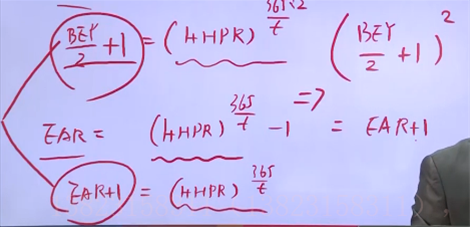 BEY/2 + 1 = (1+HPR)^365/t (BEY/2 + 1)^2
EAR = (1+HPR)^365/t - 1 => = EAR+1
EAR+1 = (1+HPR)^365/t